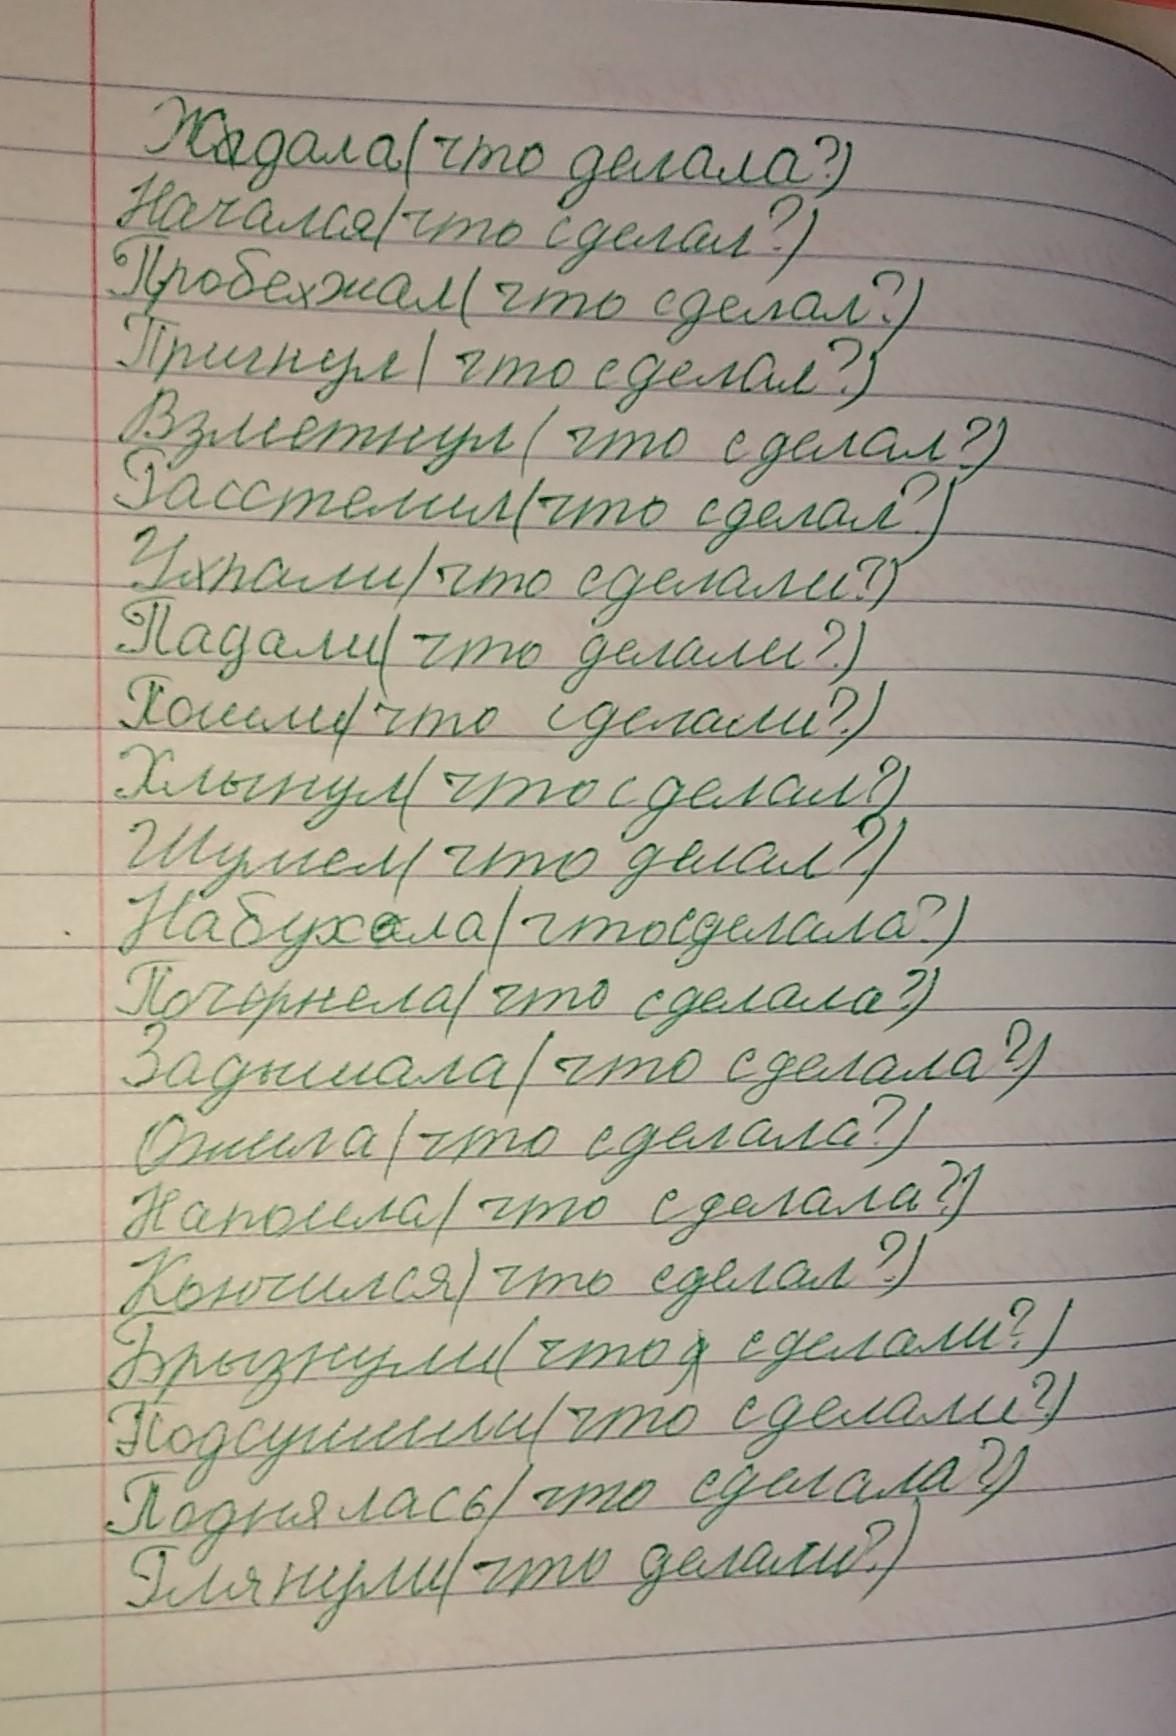 Ждала(что делала?)
Начался(что сделал?)
Пробежал(что сделал?)
Пригнул(что сделал?)
Взметнул(что сделал?)
Расстелил(что сделал?)
Упали(что сделали?)
Падали(что делали?)
Пошли(что сделали?)
Хлынул(что сделал?)
Шумел(что делал?)
Набухала(что сделала?)
Почернела(что сделала?)
Задышала(что сделала?)
Ожила(что сделала?)
Напоила(что сделала?)
Кончился)что сделал?)
Брызнули(что сделали?)
Подсушили(что сделали?)
Поднялась(что сделала?)
Глянули(что делали?)